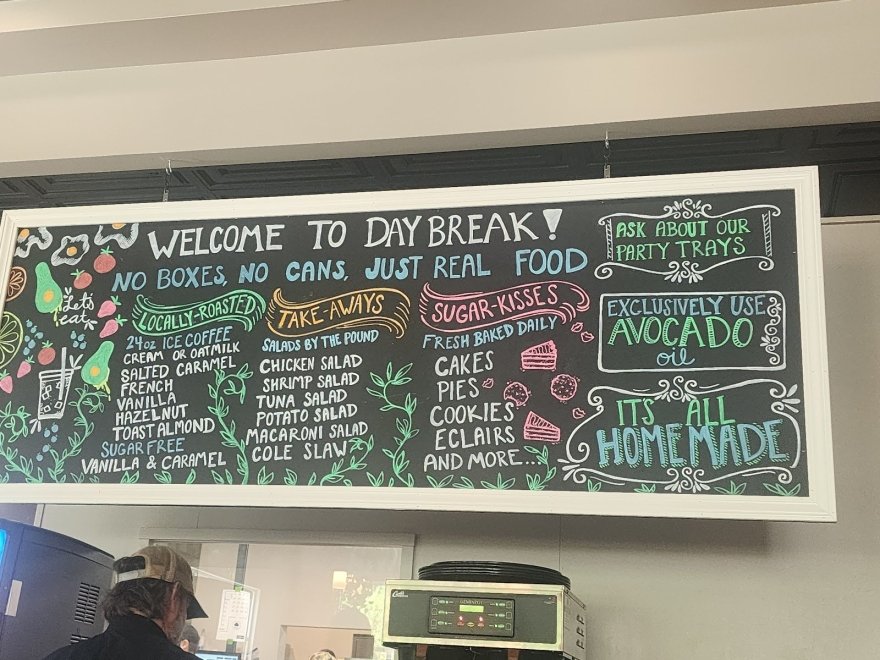 WELCOME TO DAYBREAK!
NO BOXES, NO CANS, JUST REAL FOOD
Let's
eat
LOCALLY-ROASTED
24oz ICE COFFEE
CREAM OR OATMILK
SALTED CARAMEL
FRENCH
VANILLA
HAZELNUT
TOAST ALMOND
SUGAR FREE
VANILLA & CARAMEL
TAKE-AWAYS
SALADS BY THE POUND
CHICKEN SALAD
SHRIMP SALAD
TUNA SALAD
POTATO SALAD
MACARONI SALAD
COLE SLAW
SUGAR-KISSES
FRESH BAKED DAILY
CAKES
PIES
COOKIES
ECLAIRS
AND MORE...
ASK ABOUT OUR
PARTY TRAYS
EXCLUSIVELY USE
AVOCADO
oil
IT'S ALL
HOMEMADE
Curtis